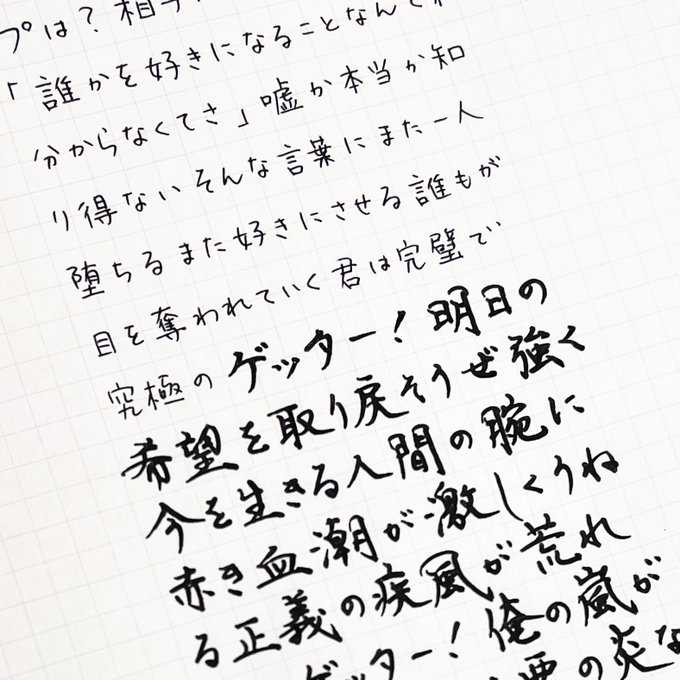 プは？相
「誰かを好きになることなんて
分からなくてさ」嘘か本当か知
り得ないそんな言葉にまた一人
堕ちるまた好きにさせる誰もが
目を奪われていく君は完璧で
究極のゲッター！明日の
希望を取り戻そうぜ強く
今を生きる人間の腕に
赤き血潮が激しくうね
る正義の疾風が荒れ
ゲッター！俺の嵐が
の炎